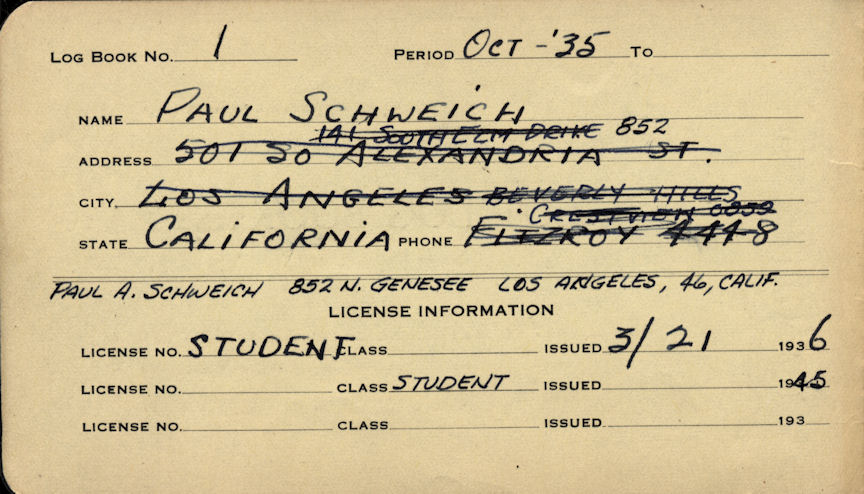 LOG BOOK NO. 1 PERIOD OCT - '35 TO
NAME PAUL SCHWEICH
141 SOUTH ELM DRIVE 852
ADDRESS 501 SO ALEXANDRIA ST.
CITY LOS ANGELES BEVERLY HILLS
CRESTVIEW 0059
STATE CALIFORNIA PHONE FITZROY 4448
PAUL A. SCHWEICH 852 N. GENESEE LOS ANGELES, 46, CALIF.
LICENSE INFORMATION
LICENSE NO. STUDENT CLASS ISSUED 3/21 1936
LICENSE NO. CLASS STUDENT ISSUED 1945
LICENSE NO. CLASS ISSUED 193